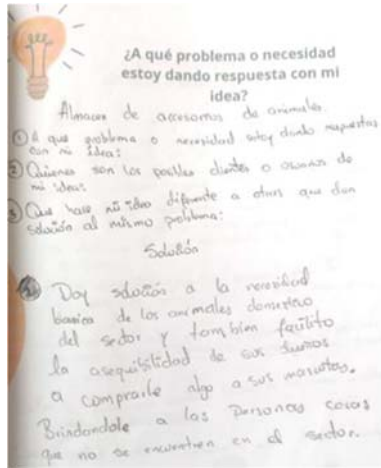 ¿A qué problema o necesidad
estoy dando respuesta con mi
idea?
Almacen de accesorios de animales
① A que problema o necesidad estoy dando respuestas
con mi idea:
② Quienes son los posibles clientes o usuarios de
mi idea:
③ Que hace mi idea diferente a otras que dan
solución al mismo problema:
Solución
Doy solución a la necesidad
basica de los animales domestico
del sector y tambien facilito
la asequibilidad de sus
a comprarle algo a sus mascotas.
Brindandole a las personas cosas
que no se encuentren en el sector.